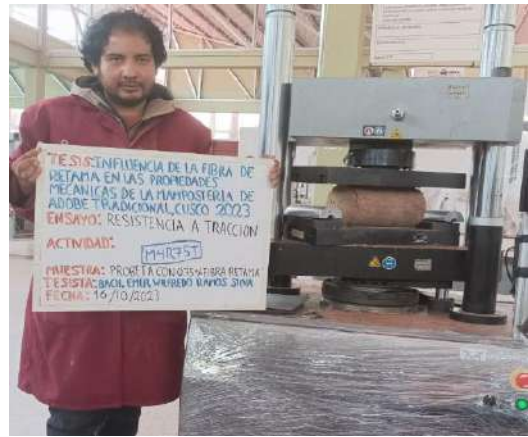 TESIS: INFLUENCIA DE LA FIBRA DE
RETAMA EN LAS PROPIEDADES
MECANICAS DE LA MAMPOSTERIA DE
ADOBE TRADICIONAL, CUSCO 2023
ENSAYO: RESISTENCIA A TRACCION
ACTIVIDAD:
M4R75T
MUESTRA: PROBETA CON 0.75% FIBRA RETAMA
TESISTA: BACH. EMER WILFREDO RAMOS
FECHA: 16/10/2023